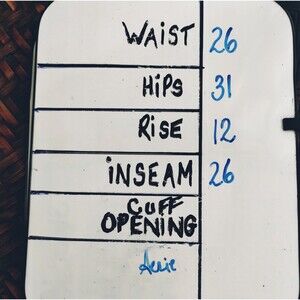 WAIST 26
HiPs 31
RisE 12
iNSEAM 26
CUFF
OPENING